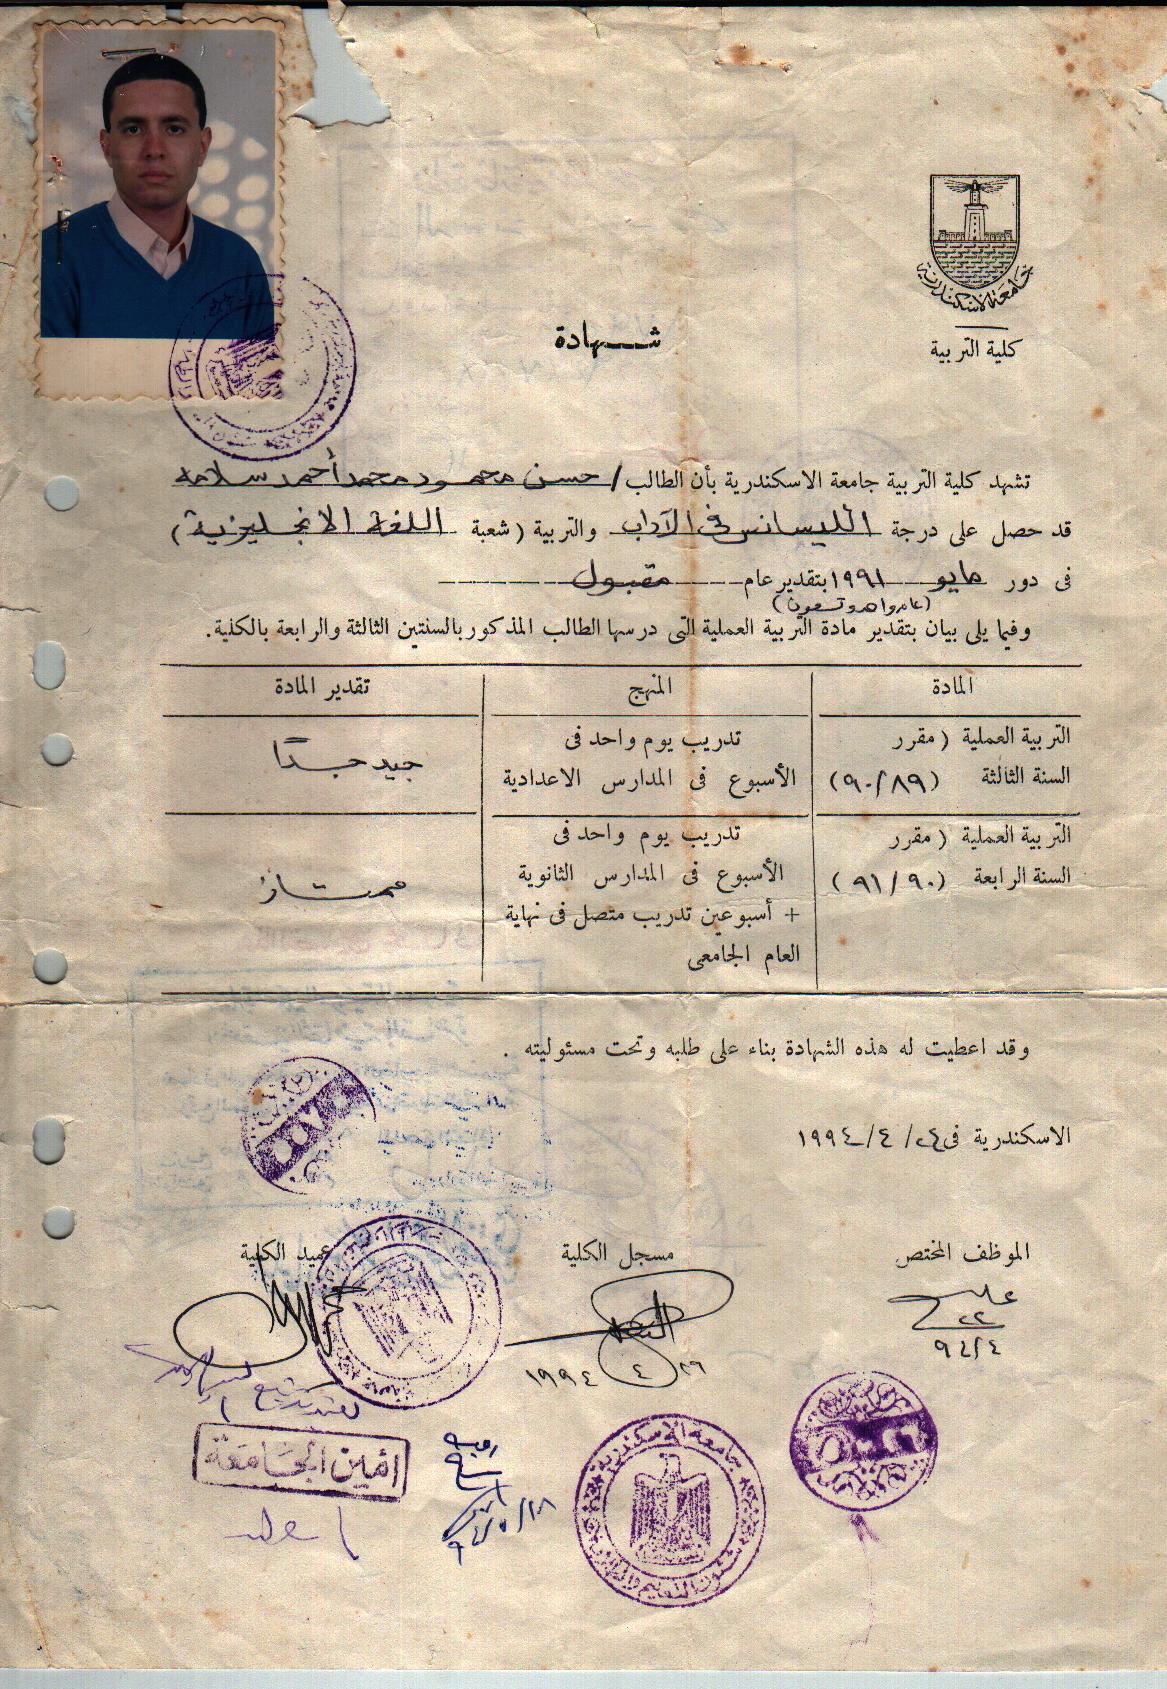 جامعة الاسكندرية
كلية التربية
شهادة
تشهد كلية التربية جامعة الاسكندرية بأن الطالب / حسن محمود محمد أحمد سلامه
قد حصل على درجة الليسانس فى الآداب والتربية ( شعبة اللغة الانجليزية )
فى دور مايو ١٩٩١ بتقدير عام مقبول
( عام واحد وتسعون )
وفيما يلى بيان بتقدير مادة التربية العملية التى درسها الطالب المذكور بالسنتين الثالثة والرابعة بالكلية .
المادة المنهج تقدير المادة
التربية العملية ( مقرر تدريب يوم واحد فى جيد جدًا
السنة الثالثة (٩٠/٨٩) الأسبوع فى المدارس الاعدادية
التربية العملية ( مقرر تدريب يوم واحد فى
السنة الرابعة (٩١/٩٠) الأسبوع فى المدارس الثانوية ممتاز
+ أسبوعين تدريب متصل فى نهاية
العام الجامعى
وقد اعطيت له هذه الشهادة بناء على طلبه وتحت مسئوليته .
الاسكندرية فى ٢٤/ ٤/ ١٩٩٤
الموظف المختص مسجل الكلية عميد الكلية
أمين الجامعة
جامعة الاسكندرية